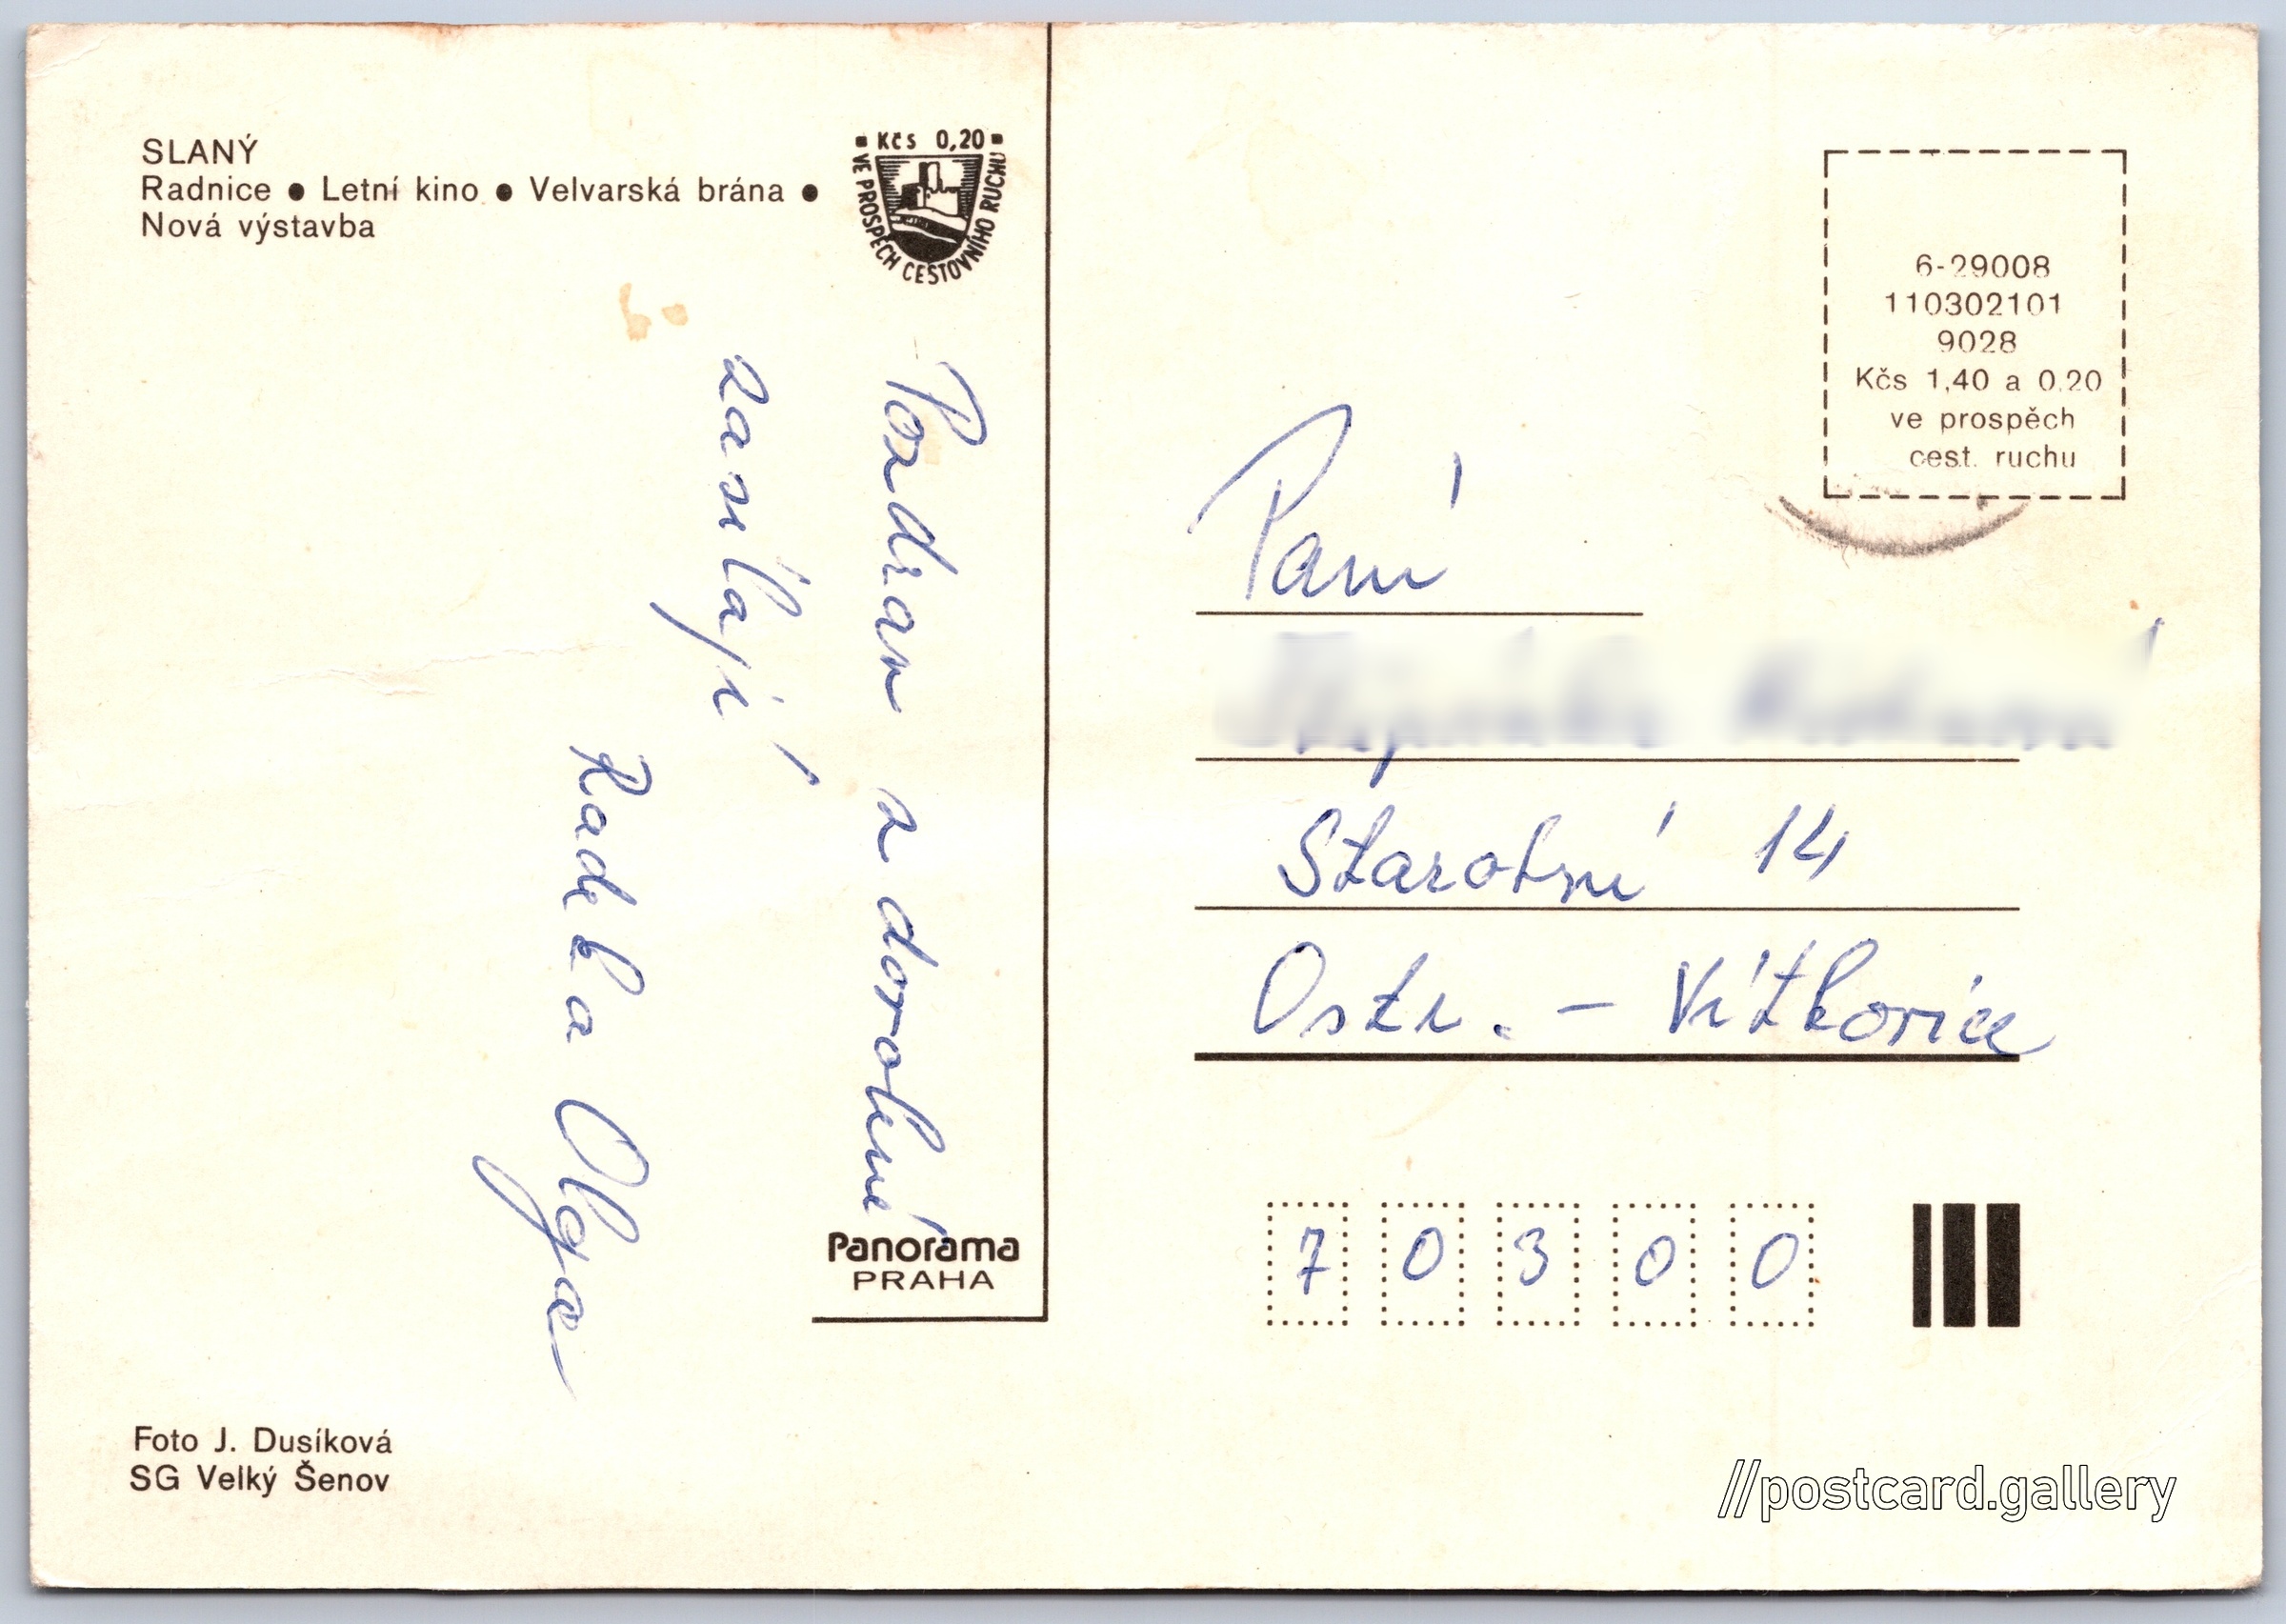 SLANÝ
Radnice ● Letní kino ● Velvarská brána ●
Nová výstavba
Kčs 0,20
VE PROSPĚCH CESTOVNÍHO RUCHU
Pozdrav z dovolené
zasílají
Radka Olga
Panorama
PRAHA
Foto J. Dusíková
SG Velký Šenov
6-29008
110302101
9028
Kčs 1,40 a 0.20
ve prospěch
cest. ruchu
Paní
14
Ostr. - Vítkovice
7 0 3 0 0
//postcard.gallery